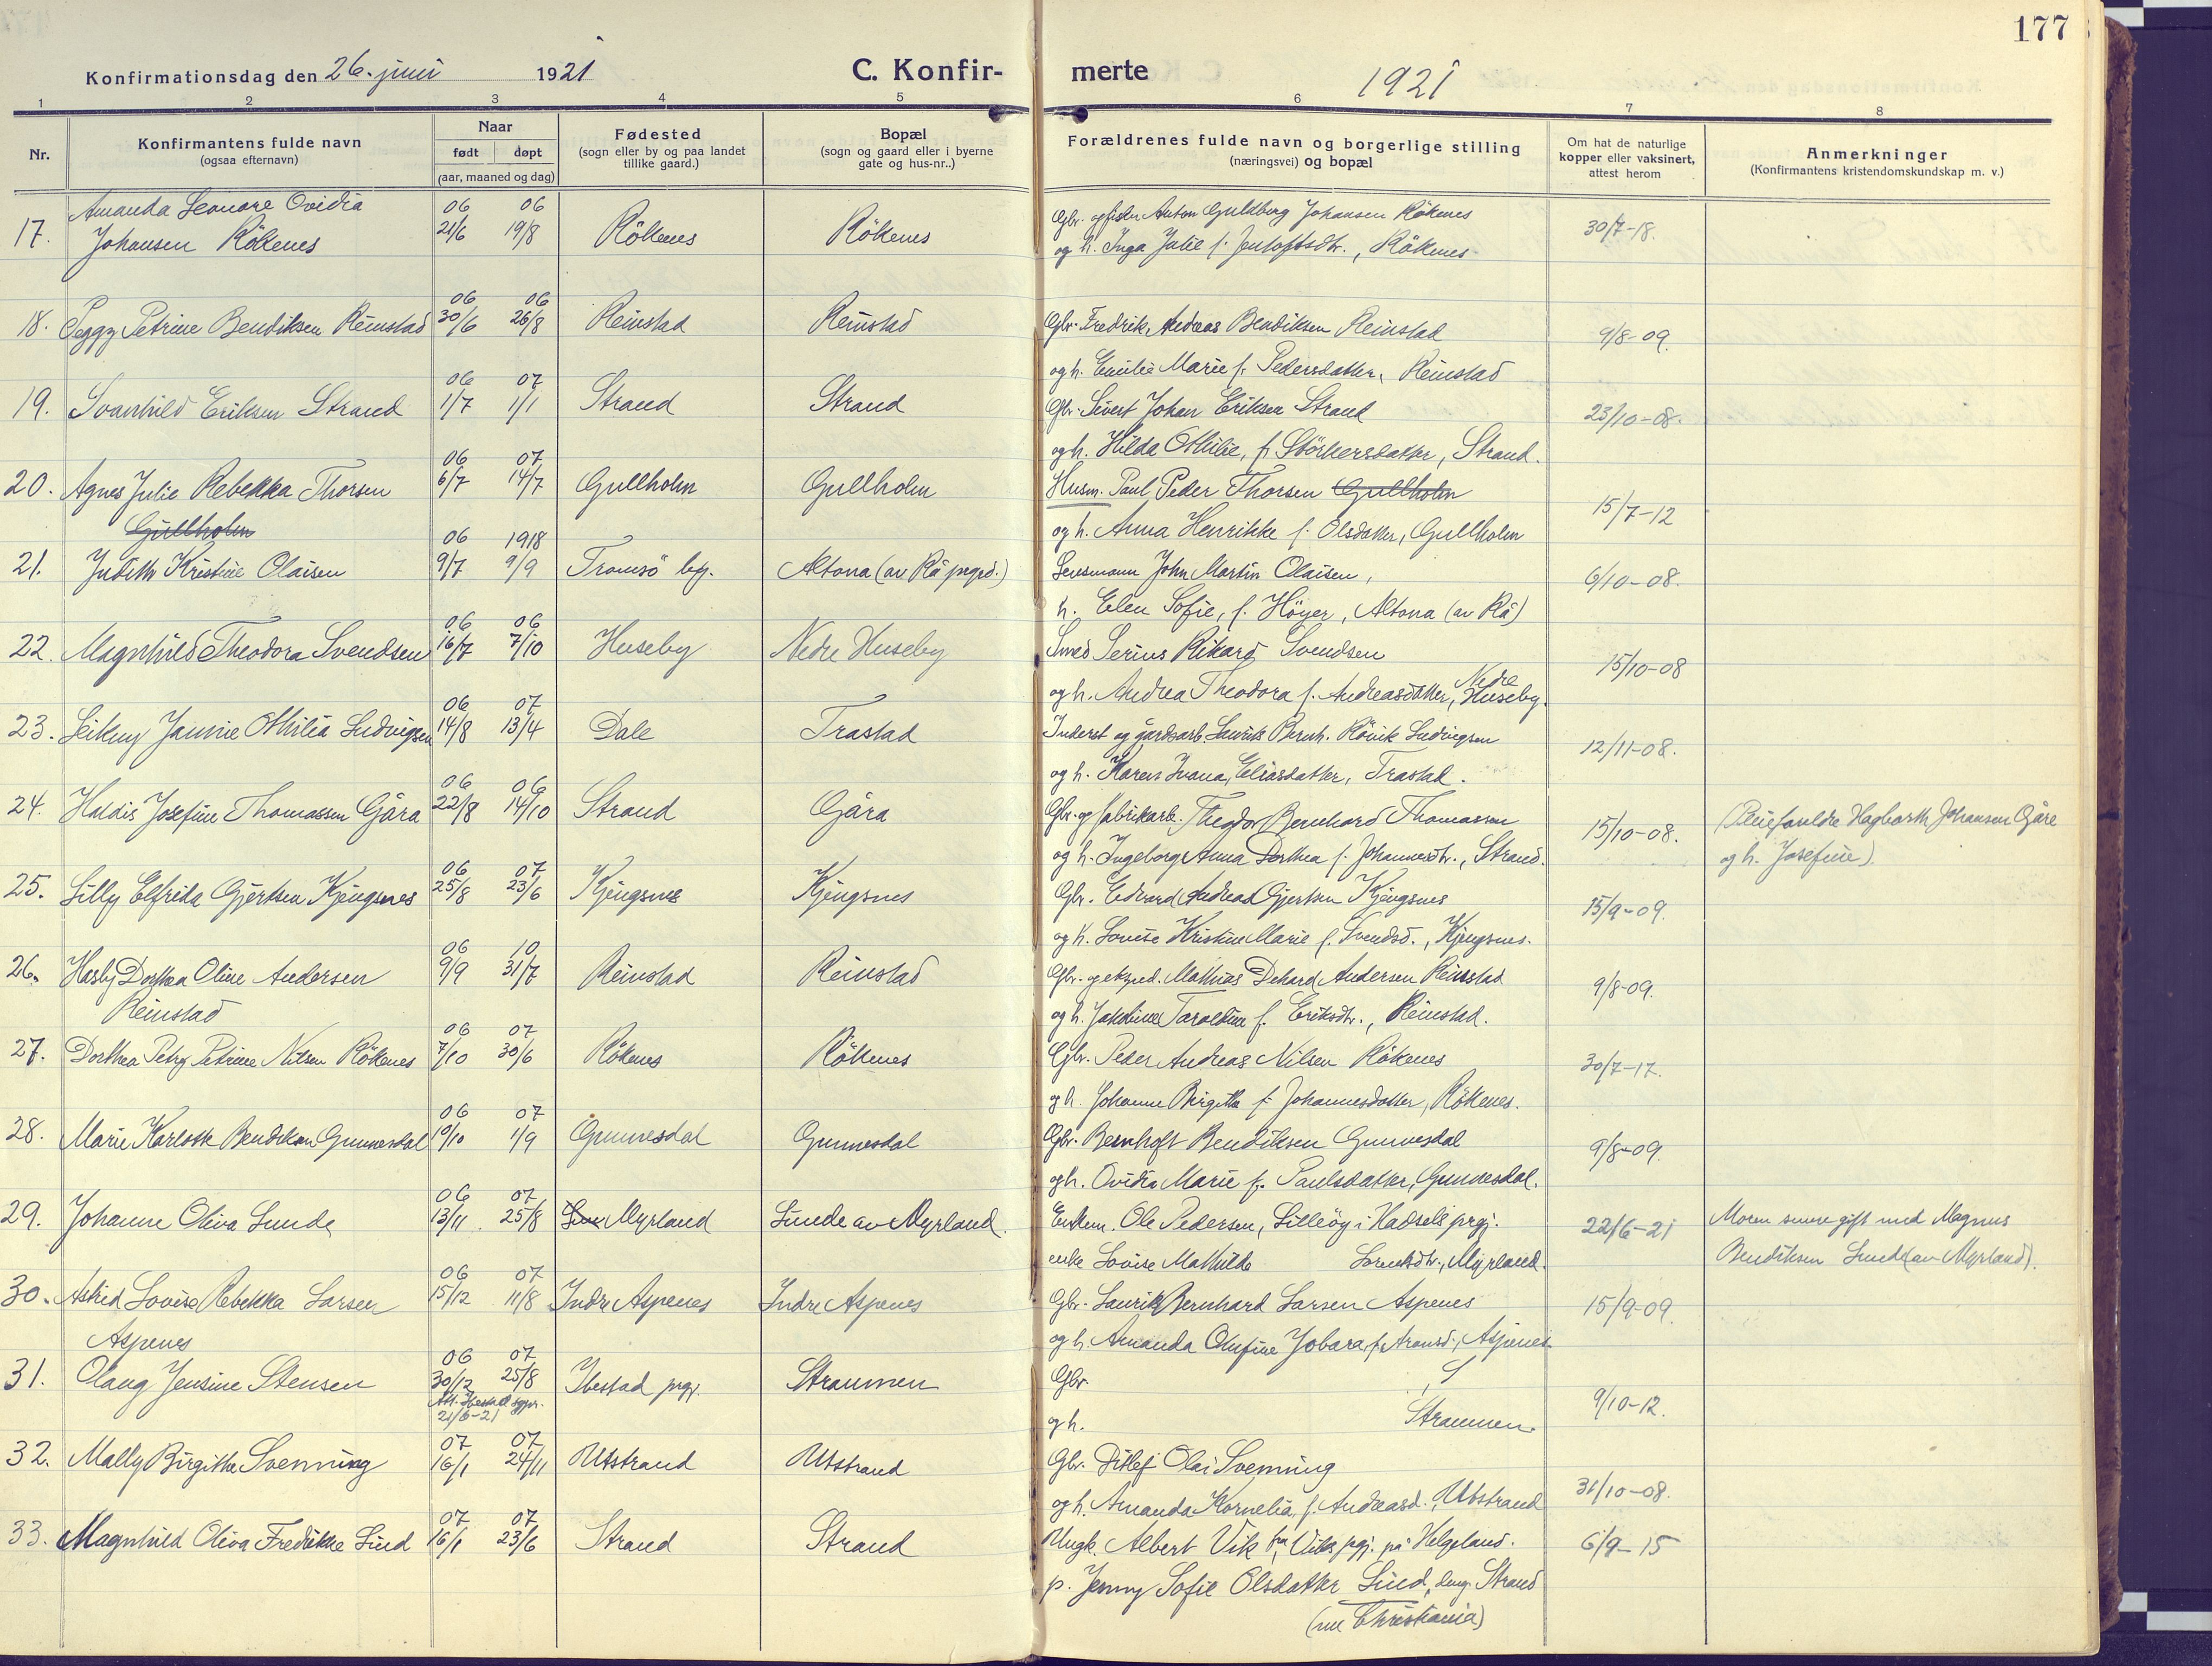 177
Konfirmationsdag den 26. juni 1921
C. Konfirmerte
1921
1 2 3 4 5 6 7 8
Nr.
Konfirmantens fulde navn
(ogsaa efternavn)
Naar
født døpt
(aar, maaned og dag)
Fødested
(sogn eller by og paa landet
tillike gaard.)
Bopæl
(sogn og gaard eller i byerne
gate og hus-nr..)
Forældrenes fulde navn og borgerlige stilling
(næringsvei) og bopæl
Om hat de naturlige
kopper eller vaksinert,
attest herom
Anmerkninger
(Konfirmantens kristendomskundskap m. v.)
Amanda Leonore Ovidia 06 06
17. Johansen Rökenes 21/6 19/8 Rökenes Rökenes Gbr. og fisker Anton Guldberg Johansen Rökenes 30/7-18.
og h. Inga Julie f. Jentoftsdtr., Rökenes
06 06
18. Peggy Petrine Bendiksen Reinstad 30/6 26/8 Reinstad Reinstad Gbr. Fredrik Andreas Bendiksen Reinstad 9/8-09.
og h. Emilie Marie f. Pedersdatter, Reinstad
06 07
19. Svanhild Eriksen Strand 1/7 1/1 Strand Strand Gbr. Sivert Johan Eriksen Strand 23/10-08.
og h. Hilda Othilie, f. Störkersdatter, Strand.
06 07
20. Agnes Julie Rebekka Thorsen 6/7 14/7 Gullholm Gullholm Husm. Paul Peder Thorsen Gullholm 15/7-12
Gullholm
og h. Anna Henrikke f. Olsdatter, Gullholm
06 1918
21. Judith Kristine Olaisen 9/7 9/9 Tromsö by. Altona (av Rå prgrd.) Lensmann John Martin Olaisen, 6/10-08.
h. Elen Sofie, f. Höyer, Altona (av Rå)
06 06
22. Magnhild Theodora Svendsen 16/7 7/10 Huseby Nedre Huseby Smed Serius Rikard Svendsen 15/10-08
og h. Andrea Theodora f. Andreasdatter, Nedre Huseby.
06 07
23. Leikny Jannie Othilia Ludvigsen 14/8 13/4 Dale Trastad Inderst og gårdsarb. Laurits Bernh. Rövik Ludvigsen 12/11-08.
og h. Karen Ivana, Eliasdatter, Trastad.
06 06
24. Haldis Josefine Thomassen Gåra 22/8 14/10 Strand Gåra Gbr. og fabrikarb. Theodor Bernhard Thomassen 15/10-08. (Pleieforeldre Hagbarth Johansen Gåre
og h. Ingeborg Anna Dorthea f. Johannesdtr., Strand. og h. Josefine).
06 07
25. Lilly Elfrida Gjertsen Kjengsnes 25/8 23/6 Kjengsnes Kjengsnes Gbr. Edvard Andreas Gjertsen Kjengsnes 15/9-09.
og h. Lovise Kristine Marie f. Svendsd., Kjengsnes.
06 10
26. Hasly Dorthea Oline Andersen 9/9 31/7 Reinstad Reinstad Gbr. og eksped. Mathias Dehard Andersen Reinstad 9/8-09.
Reinstad
og h. Jakobine Taraldine f. Eriksdtr., Reinstad.
06 07
27. Dorthea Petry Petrine Nilsen Rökenes 7/10 30/6 Rökenes Rökenes Gbr. Peder Andreas Nilsen Rökenes 30/7-17.
og h. Johanne Birgitte f. Johannesdatter, Rökenes.
06 07
28. Marie Karlotte Bendiksen Gunnesdal 19/10 1/9 Gunnesdal Gunnesdal Gbr. Bernhoft Bendiksen Gunnesdal 9/8-09.
og h. Ovidia Marie f. Paulsdatter, Gunnesdal.
06 07
29. Johanne Oliva Lunde 13/11 25/8 Myrland Lunde av Myrland. Enkem. Ole Pedersen, Lilleöy i Hadsels prgj. 22/6-21 Moren senere gift med Magnus
enke Lovise Mathilde Lorentsdtr., Myrland. Bendiksen Lunde (av Myrland).
06 07
30. Astrid Lovise Rebekka Larsen 15/12 11/8 Indre Aspenes Indre Aspenes Gbr. Laurits Bernhard Larsen Aspenes 15/9-09.
Aspenes
og h. Amanda Olufine Jobara f. Aronsd., Aspenes.
06 07
31. Olaug Jensine Stensen 30/12 25/8 Ibestad prgj. Straumen Gbr. S 9/10-12.
Att. Ibestad sgpr.
21/6-21
og h. Straumen.
07 07
32. Mally Birgithe Svenning 16/1 24/11 Utstrand Utstrand Gbr. Ditlef Olai Svenning 31/10-08.
og h. Amanda Kornelia, f. Andreasd., Utstrand
07 07
33. Magnhild Oliva Fredrikke Lind 16/1 23/6 Strand Strand Ungk. Albert Vik fra Viks prgj. på Helgeland. 6/9-15
p. Jenny Sofie Olsdatter Lind, Strand
(nu Christiania)